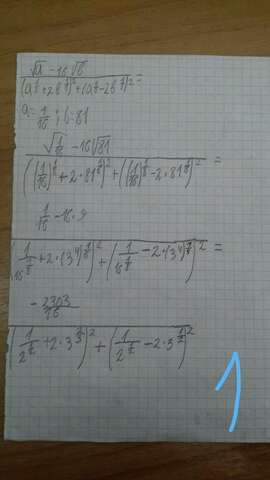 √a - 16√b
(a^{1/8} + 2b^{1/8})^2 + (a^{1/8} - 2b^{1/8})^2 =
a = 1/16 ; b = 81
√(1/16) - 16√81
((1/16)^{1/8} + 2·81^{1/8})^2 + ((1/16)^{1/8} - 2·81^{1/8})^2 =
1/16 - 16·9
(1/16^{1/8} + 2·(3^4)^{1/8})^2 + (1/16^{1/8} - 2·(3^4)^{1/8})^2 =
- 2303/16
(1/2^{1/2} + 2·3^{1/2})^2 + (1/2^{1/2} - 2·3^{1/2})^2
1